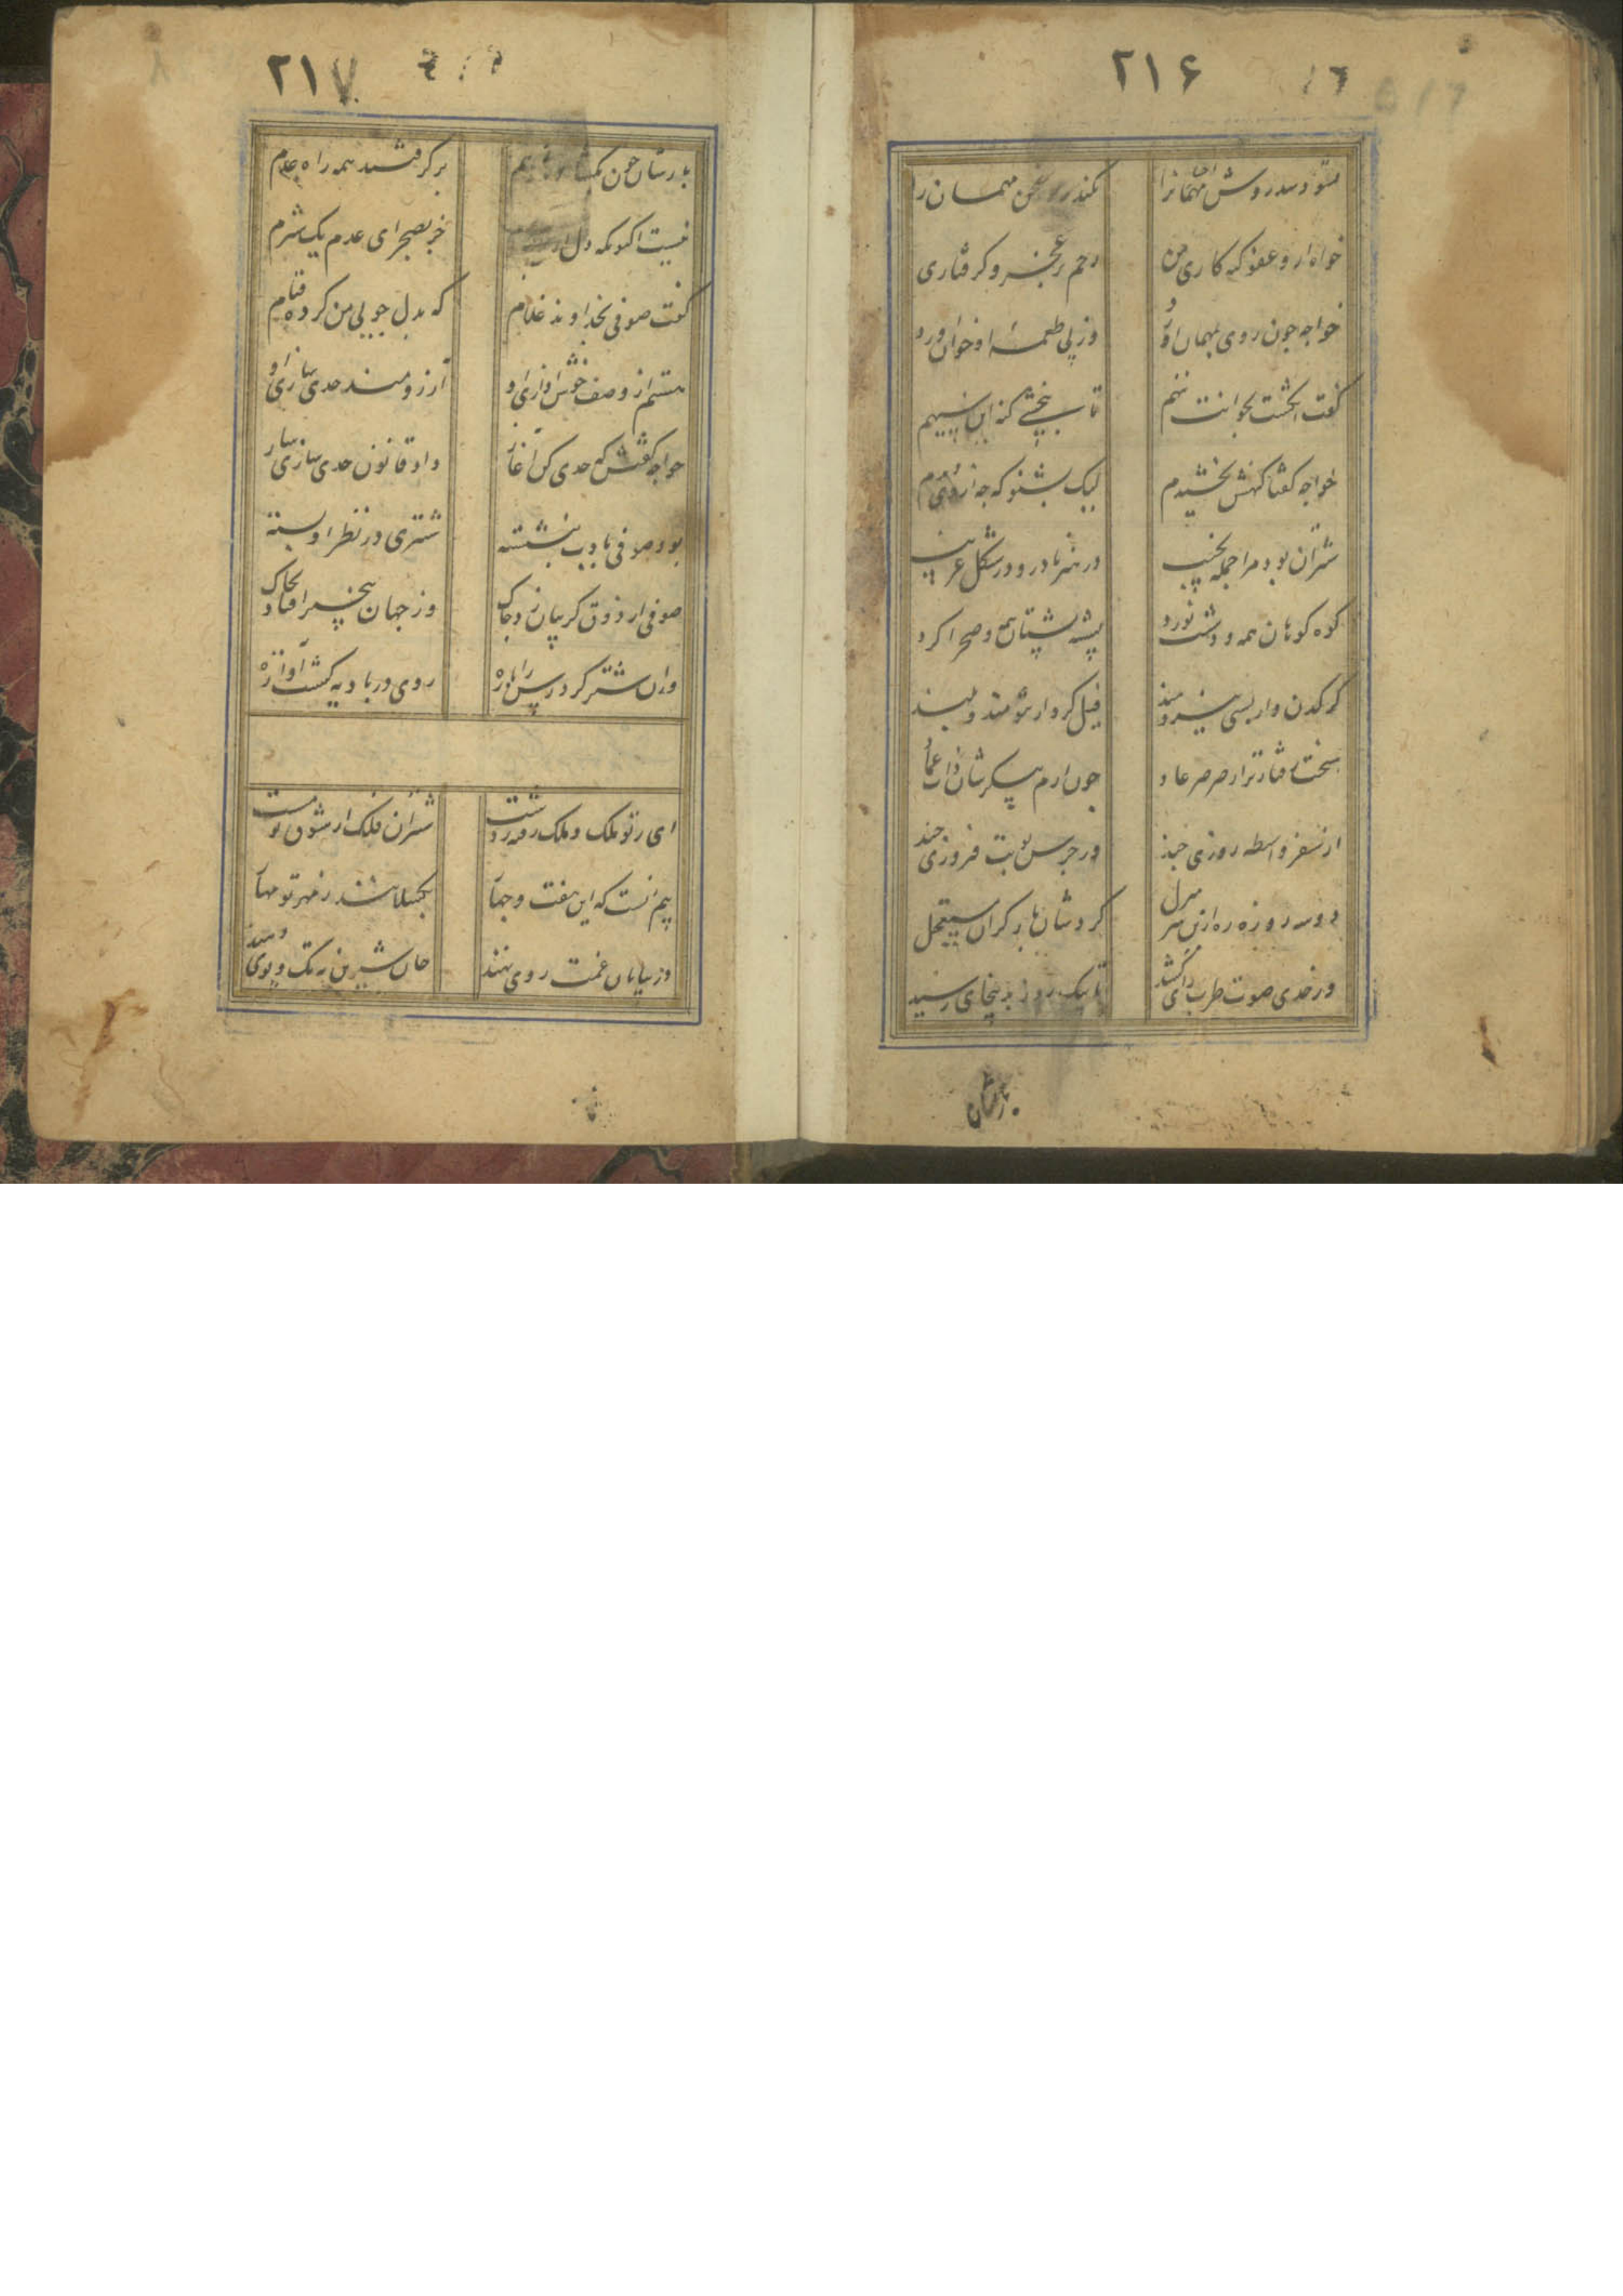 ۲۱۶
بشنود سدروش مهمانرا نکندرد سخن مهمان را
خواهد از وعفو کنه کاری من رحم بر عجز و کرفتاری
خواجه چون روی بمهمان آورد وز پی طعمه او خوان آورد
کفت انکشت بخوانت ننهم تا به بخشی کنه این سیهم
خواجه کفتا کنهش بخشیدم لیک بشنو که چه از وی دیدم
شتران بود مرا جمله نجیب در هنر نادر و در شکل غریب
کوه کوهان همه و دشت نورد پیشه پشتان همه و صحرا کرد
کرکدن وار بسی نیرومند فیل کردار تنومند و بلند
سخت رفتارتر از صرصر عاد چون ارم پیکرشان ذات عماد
از سفر واسطه روزی چند در جرس نوبت فیروزی چند
دو سه روزه ره ازین سر منزل کردشان بار کران مستعجل
در حدی صوت طرب زای کشید تا بیک روز بدینجای رسید
بارشان
۲۱۷
بارشان چون بکشادند ز هم بر کرفتند همه راه عدم
نیست اکنون که دل جز بصحرای عدم یک شترم
کفت صوفی بخداوند غلام که بدل جویی من کرده قیام
هستم از وصف خوش آوازی او آرزومند حدی سازی او
خواجه کفتش که حدی کن آغاز داد قانون حدی سازی ساز
بود صوفی بادب بنشسته شتری در نظر او بسته
صوفی از ذوق کریبان زد چاک وز جهان بیخبر افتاد بخاک
وان شتر کرد رسن را پاره روی در بادیه کشت آواره
ای ز تو ملک و ملک رفته ز دست شتران فلک از شوق تو مست
بیم آنست که این هفت و چهار بکسلانند ز مهر تو مهار
وز بیابان غمت روی نهند جان شیرین بتک و پوی دهند